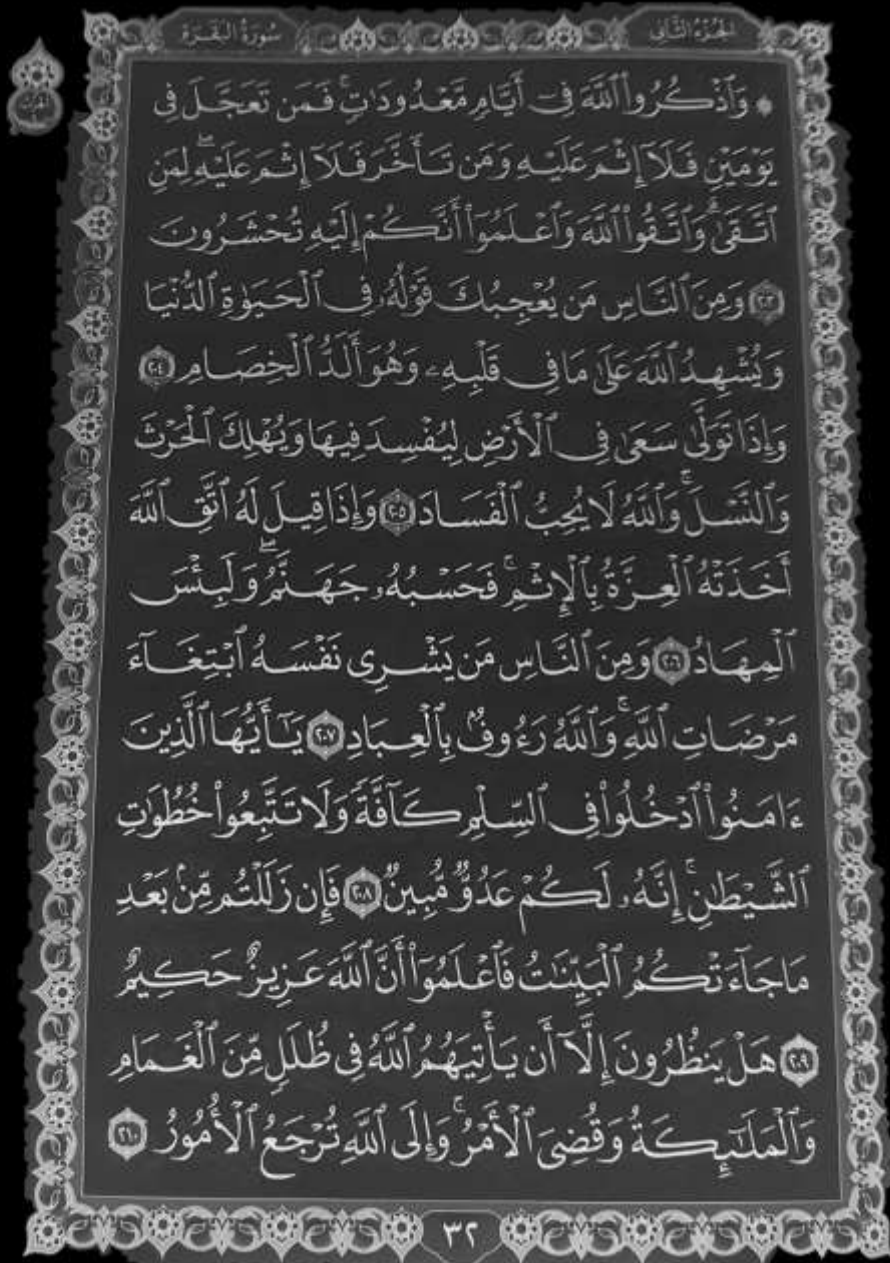 الجزء الثاني
سورة البقرة
۞ وَٱذْكُرُوا۟ ٱللَّهَ فِىٓ أَيَّامٍ مَّعْدُودَٰتٍ ۚ فَمَن تَعَجَّلَ فِى
يَوْمَيْنِ فَلَآ إِثْمَ عَلَيْهِ وَمَن تَأَخَّرَ فَلَآ إِثْمَ عَلَيْهِ ۖ لِمَنِ
ٱتَّقَىٰ ۗ وَٱتَّقُوا۟ ٱللَّهَ وَٱعْلَمُوٓا۟ أَنَّكُمْ إِلَيْهِ تُحْشَرُونَ
٢٠٣ وَمِنَ ٱلنَّاسِ مَن يُعْجِبُكَ قَوْلُهُۥ فِى ٱلْحَيَوٰةِ ٱلدُّنْيَا
وَيُشْهِدُ ٱللَّهَ عَلَىٰ مَا فِى قَلْبِهِۦ وَهُوَ أَلَدُّ ٱلْخِصَامِ ٢٠٤
وَإِذَا تَوَلَّىٰ سَعَىٰ فِى ٱلْأَرْضِ لِيُفْسِدَ فِيهَا وَيُهْلِكَ ٱلْحَرْثَ
وَٱلنَّسْلَ ۚ وَٱللَّهُ لَا يُحِبُّ ٱلْفَسَادَ ٢٠٥ وَإِذَا قِيلَ لَهُ ٱتَّقِ ٱللَّهَ
أَخَذَتْهُ ٱلْعِزَّةُ بِٱلْإِثْمِ ۚ فَحَسْبُهُۥ جَهَنَّمُ ۖ وَلَبِئْسَ
ٱلْمِهَادُ ٢٠٦ وَمِنَ ٱلنَّاسِ مَن يَشْرِى نَفْسَهُ ٱبْتِغَآءَ
مَرْضَاتِ ٱللَّهِ ۚ وَٱللَّهُ رَءُوفٌۢ بِٱلْعِبَادِ ٢٠٧ يَٰٓأَيُّهَا ٱلَّذِينَ
ءَامَنُوا۟ ٱدْخُلُوا۟ فِى ٱلسِّلْمِ كَآفَّةً وَلَا تَتَّبِعُوا۟ خُطُوَٰتِ
ٱلشَّيْطَٰنِ ۚ إِنَّهُۥ لَكُمْ عَدُوٌّ مُّبِينٌ ٢٠٨ فَإِن زَلَلْتُم مِّنۢ بَعْدِ
مَا جَآءَتْكُمُ ٱلْبَيِّنَٰتُ فَٱعْلَمُوٓا۟ أَنَّ ٱللَّهَ عَزِيزٌ حَكِيمٌ
٢٠٩ هَلْ يَنظُرُونَ إِلَّآ أَن يَأْتِيَهُمُ ٱللَّهُ فِى ظُلَلٍ مِّنَ ٱلْغَمَامِ
وَٱلْمَلَٰٓئِكَةُ وَقُضِىَ ٱلْأَمْرُ ۚ وَإِلَى ٱللَّهِ تُرْجَعُ ٱلْأُمُورُ ٢١٠
٣٢